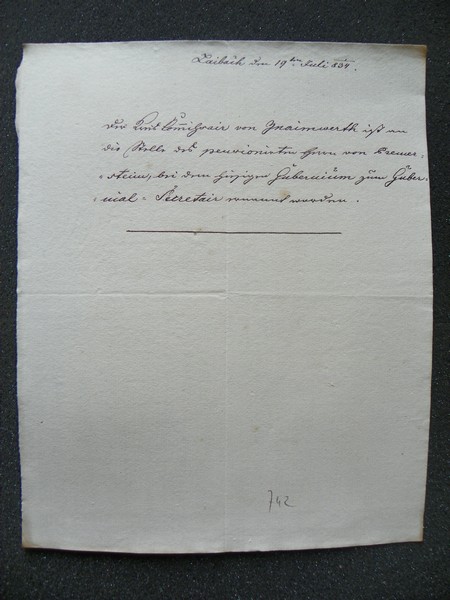 Laibach den 19ten Juli 834.
Der Commissair von ist an
die Stelle des pensionirten Herrn von Kremer-
=stein, bei dem hiesigen Gubernium zum Guber-
=nial=Secretair ernannt worden.
742